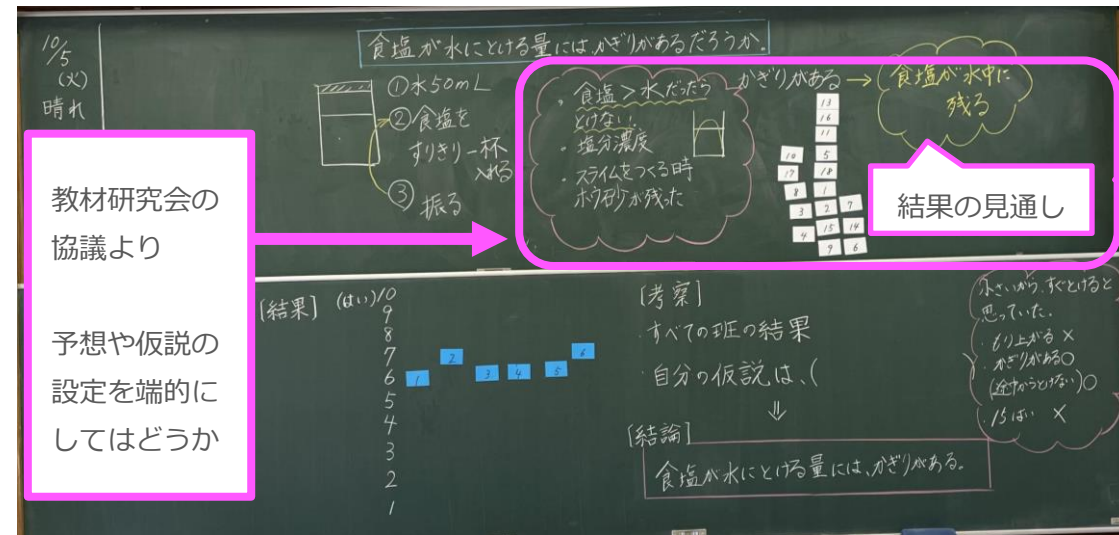 10/5
(火)
晴れ
食塩が水にとける量には、かぎりがあるだろうか。
①水50mL
②食塩を
すりきり一杯
入れる
③振る
・食塩＞水だったら
とけない。
・塩分濃度
・スライムをつくる時
ホウ砂が残った
かぎりがある→
食塩が水中に
残る
13
16
11
10 5
17 18
8 1
3 2 7
4 15 14
9 6
結果の見通し
教材研究会の
協議より
予想や仮説の
設定を端的に
してはどうか
[結果] (はい)10
9
8
7
6
5
4
3
2
1
1 2 3 4 5 6
[考察]
・すべての班の結果
・自分の仮説は、(
⇓
[結論]
食塩が水にとける量には、かぎりがある。
小さいから、すぐとけると
思っていた。
・もり上がる ×
・かぎりがある○
(途中からとけない)○
・15はい ×